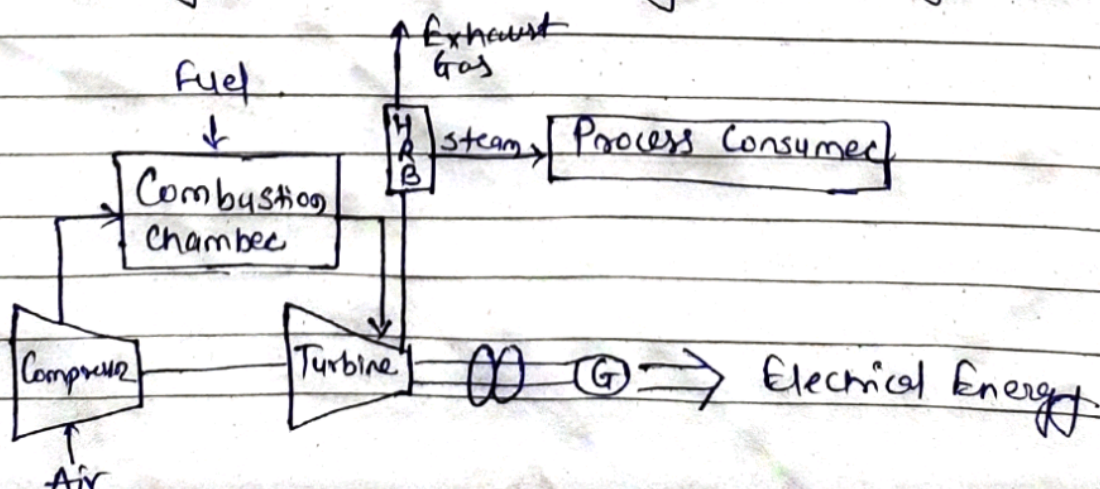 Exhaust
Gas
Fuel
H
R
B
steam
Process Consumer
Combustion
Chamber
Compressor
Turbine
G
Electrical Energy
Air